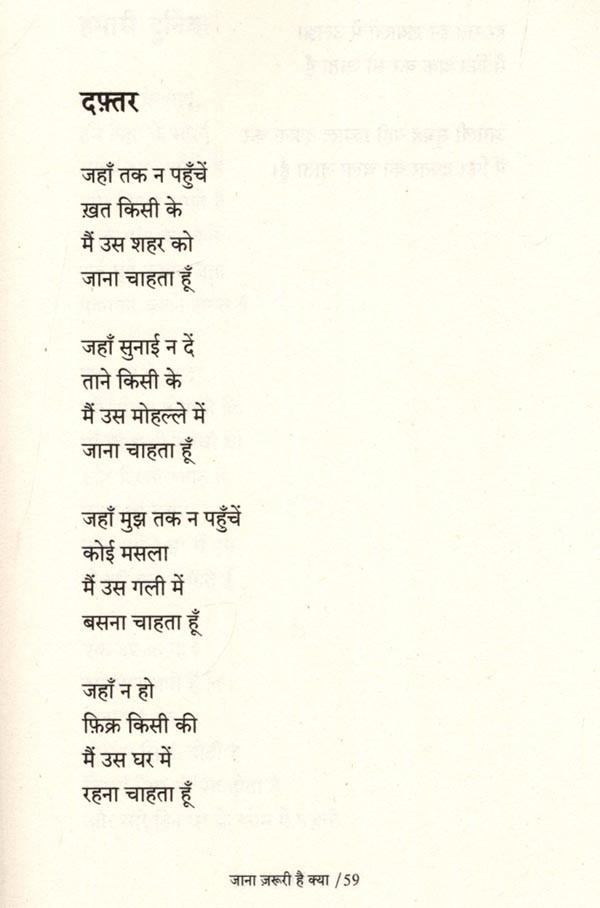 दफ़्तर
जहाँ तक न पहुँचें
ख़त किसी के
मैं उस शहर को
जाना चाहता हूँ
जहाँ सुनाई न दें
ताने किसी के
मैं उस मोहल्ले में
जाना चाहता हूँ
जहाँ मुझ तक न पहुँचें
कोई मसला
मैं उस गली में
बसना चाहता हूँ
जहाँ न हो
फ़िक्र किसी की
मैं उस घर में
रहना चाहता हूँ
जाना ज़रूरी है क्या / 59